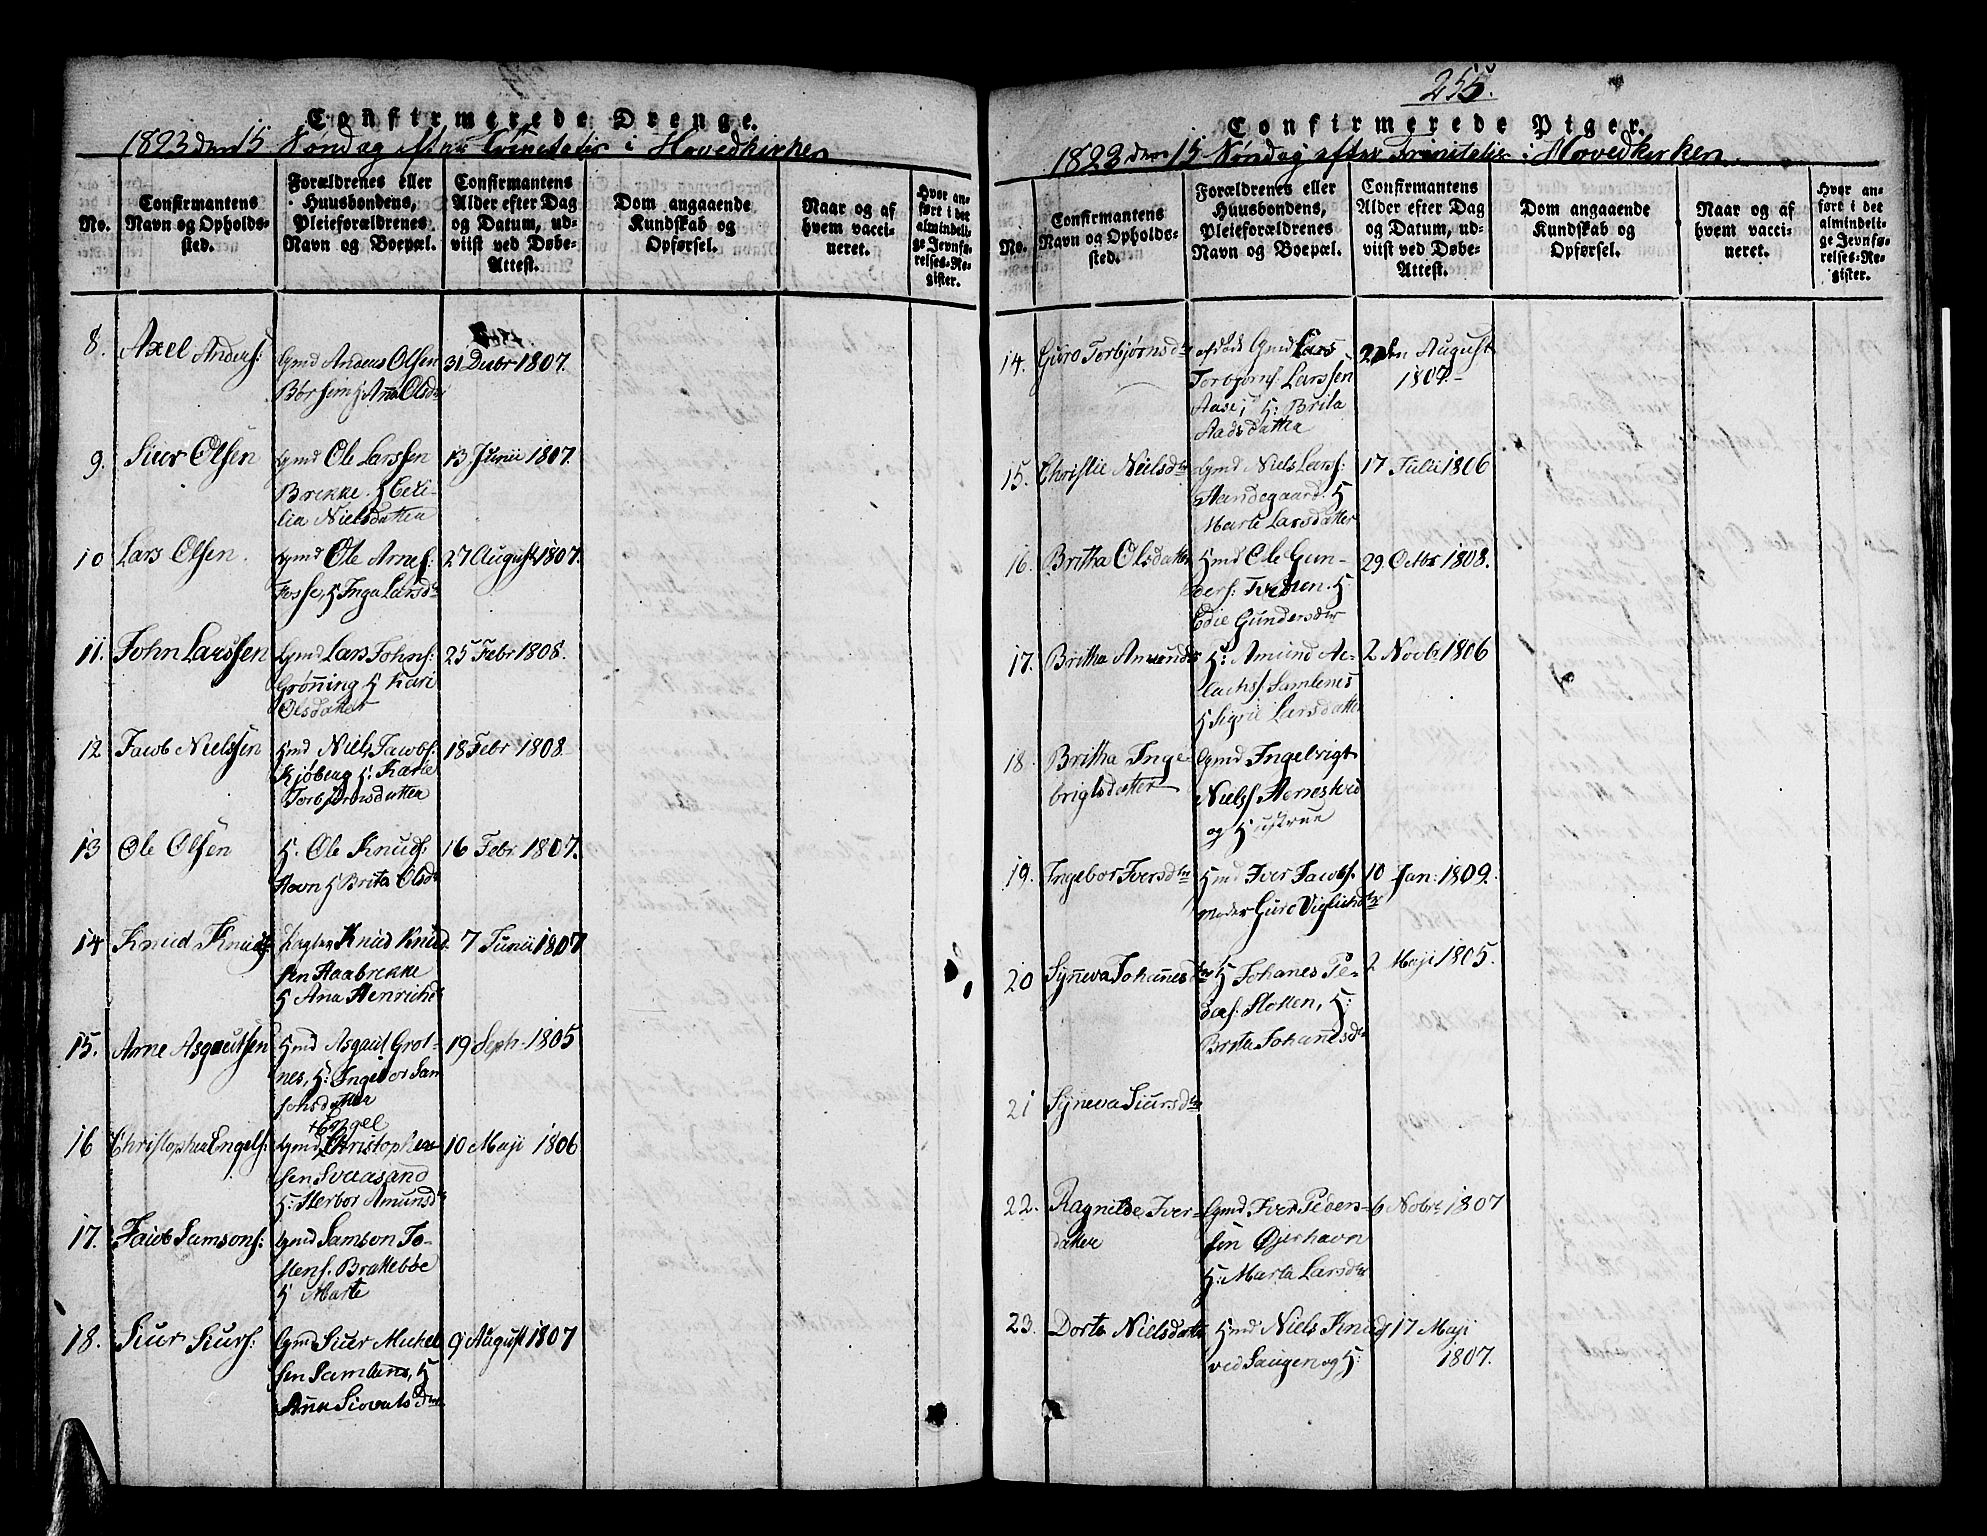 Confirmerede Drenge.
1823 den 15 Søndag efter Trinitatis i Hovedkirken
No.
Confirmantens
Navn og Opholds-
sted.
Forældrenes eller
Huusbondens,
Pleieforældrenes
Navn og Boepæl.
Confirmantens
Alder efter Dag
og Datum, ud-
viist ved Døbe-
Attest.
Dom angaaende
Kundskab og
Opførsel.
Naar og af
hvem vacci-
neret.
Hvor an-
ført i det
almindeli-
ge Jevnfø-
relses-Re-
gister.
8. Axel Anders:
Gmd Anders Olsen
Børsem Ana Olsd
31 Decbr 1807.
9. Siur Olsen
Gmd Ole Larssen
Brekke. H Ceci-
lia Nielsdatter
13 Junii 1807.
10 Lars Olsen.
Gmd Ole Arnes:
Fosse, H Inga Larsd
27 August 1807.
11. John Larssen
Gmd Lars Johns:
Grønning H Kari
Olsdatter
25 Febr 1808.
12 Jacob Nielssen
Hmd Niels Jacobs:
Kjøberg H: Karie
Torbjørnsdatter
18 Febr 1808.
13 Ole Olsen
H. Ole Knuds:
Havn H Brita Olsdr
16 Febr. 1807.
14 Knud Knuds
Knud Knud
sen Aabrekke
H Ana Henrichd
7 Junii 1807
15. Arne Asgautsen
Hmd Asgaut Grot-
nes, H: Ingebor Sam
sonsdatter
19 Septr. 1805
16 Christopher Engels:
+ Engel
Gmd Christopher
sen Svaasand
H: Herbor Amunsd
10 Maji 1806
17. Jacob Samsons:
Gmd Samson To-
stens. Brattebøe
H Marte
18. Siur Siurs:
Gmd Siur Michel
sen Samlens, H
Ana Siovatsdtr
9 August 1807
255.
Confirmerede Piger.
1823 den 15 Søndag efter Trinitatis i Hovedkirken
No.
Confirmantens
Navn og Opholds-
sted.
Forældrenes eller
Huusbondens,
Pleieforældrenes
Navn og Boepæl.
Confirmantens
Alder efter Dag
og Datum, ud-
viist ved Døbe-
Attest.
Dom angaaende
Kundskab og
Opførsel.
Naar og af
hvem vacci-
neret.
Hvor an-
ført i det
almindeli-
ge Jevnfø-
relses-Re-
gister.
14. Guro Torbjørnsdtr
afdøde Gmd Lars
Torbjøns: Larssen
Aase; H: Brita
Aadsdatter
August
1807.
15. Christie Nielsdtr
Gmd Niels Lars:
Aandegaard. H
Marte Larsdatter
17 Julii 1806
16. Britha Olsdatter
Hmd Ole Gun-
ders: Tveden. H:
Edie Gundersdtr
29. Octbr 1808.
17. Britha Amunds
H: Amund As-
lachs. Samlenes
H Sigrie Larsdatter
2 Novbr 1806
18. Britha Inge
brigtsdatter
Gmd Ingebrigt
Niels
og H ustrue
19. Ingebor Iversdtr
Hmd Iver Jacobs.
Moder Guro Vigleichdtr
10 Jan: 1809.
20 Syneva Johannesdtr
H Johanes Pe-
ders: Slotten, H:
Brita Johannesdtr
2 Maji 1805.
21 Syneva Siursdtr
22. Ragnilde Iver-
datter
Gmd Iver Peders-
sen Øjerhavn
H: Marta Larsdtr
6 Nobr. 1807
23. Dorte Nielsdatter
Hmd Niels Knuds
ved Saugen og H:
17 Maji
1807.